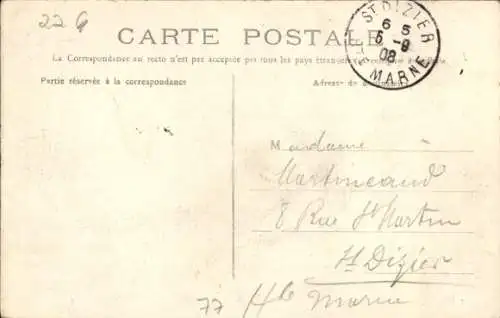 22 6
CARTE POSTALE
La Correspondance au recto n'est pas acceptée par tous les pays étrangers
Partie réservée à la correspondance
Adresse
ST DIZIER
6 S
5 -9
08
Hte MARNE
Madame
Martineaud
8 Rue St Martin
St Dizier
Hte Marne
77